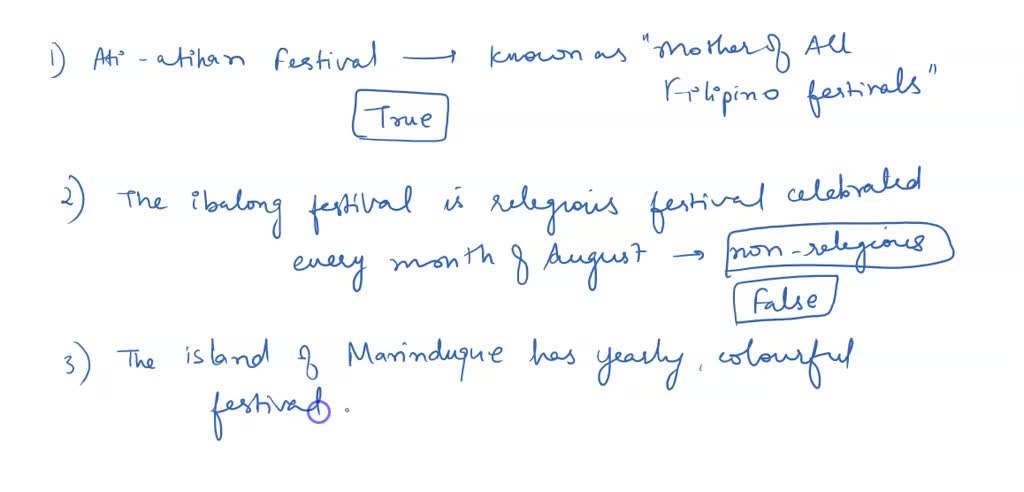 1) Ati-atihan festival → known as "Mother of All
Filipino festivals"
True
2) The ibalong festival is relegious festival celebrated
every month of August → non-relegious
False
3) The island of Marinduque has yearly, colourful
festival.